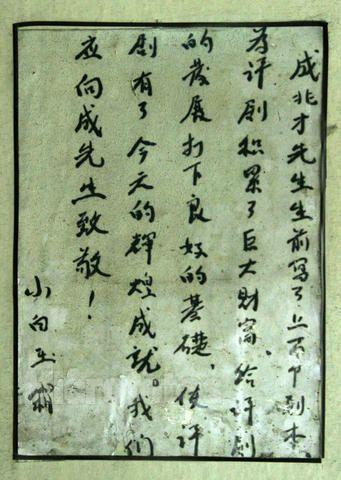 成兆才先生生前写了上百个剧本，
为评剧积累了巨大财富，给评剧
的發展打下良好的基礎，使评
剧有了今天的辉煌成就。我们
应向成先生致敬！
小白玉霜